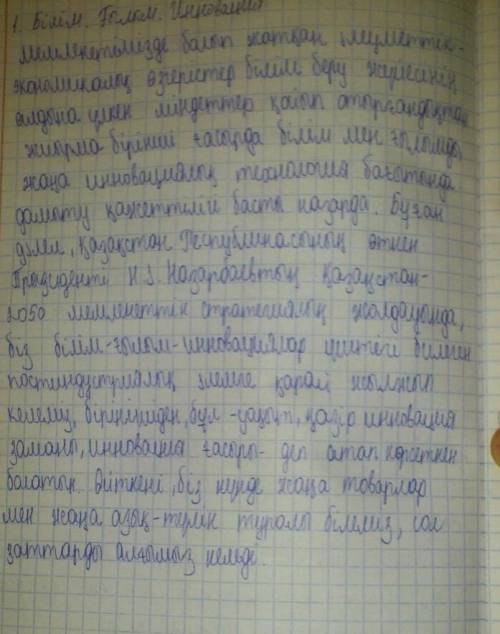 1. Білім. Ғылым. Инновация
мемлекетімізде болып жатқан әлеуметтік-
экономикалық өзгерістер білім беру жүйесінің
алдына үлкен міндеттер қойып отырғандықтан
жиырма бірінші ғасырда білім мен ғылымды,
жаңа инновациялық технология бағытында
дамыту қажеттілігі басты назарда. Бұған
дәлел, Қазақстан Республикасының өткен
Президенті Н.Ә. Назарбаевтың Қазақстан-
2050 мемлекеттік стратегиялық жолдауында,
біз білім-ғылым-инновациялар үстегі билеген
постиндустриалық әлемге қарай жылжып
келеміз, біріншіден, бұл - уақыт, қазір инновация
заманы, инновация ғасыры - деп атап көрсеткен
болатын. Өйткені, біз күнде жаңа товарлар
мен жаңа азық-түлік туралы білеміз, сол
заттарды алғымыз келеді.